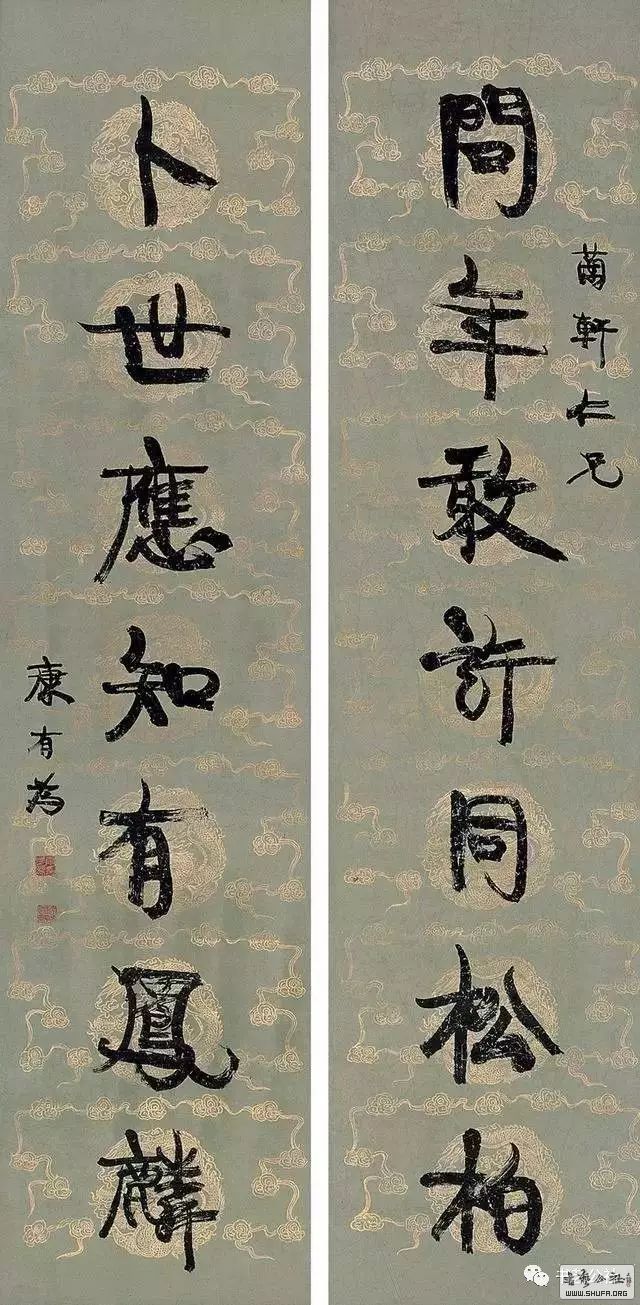 軒仁兄
問年敢許同松柏
卜世應知有鳳麟
康有為
公社
WWW.SHUFA.ORG